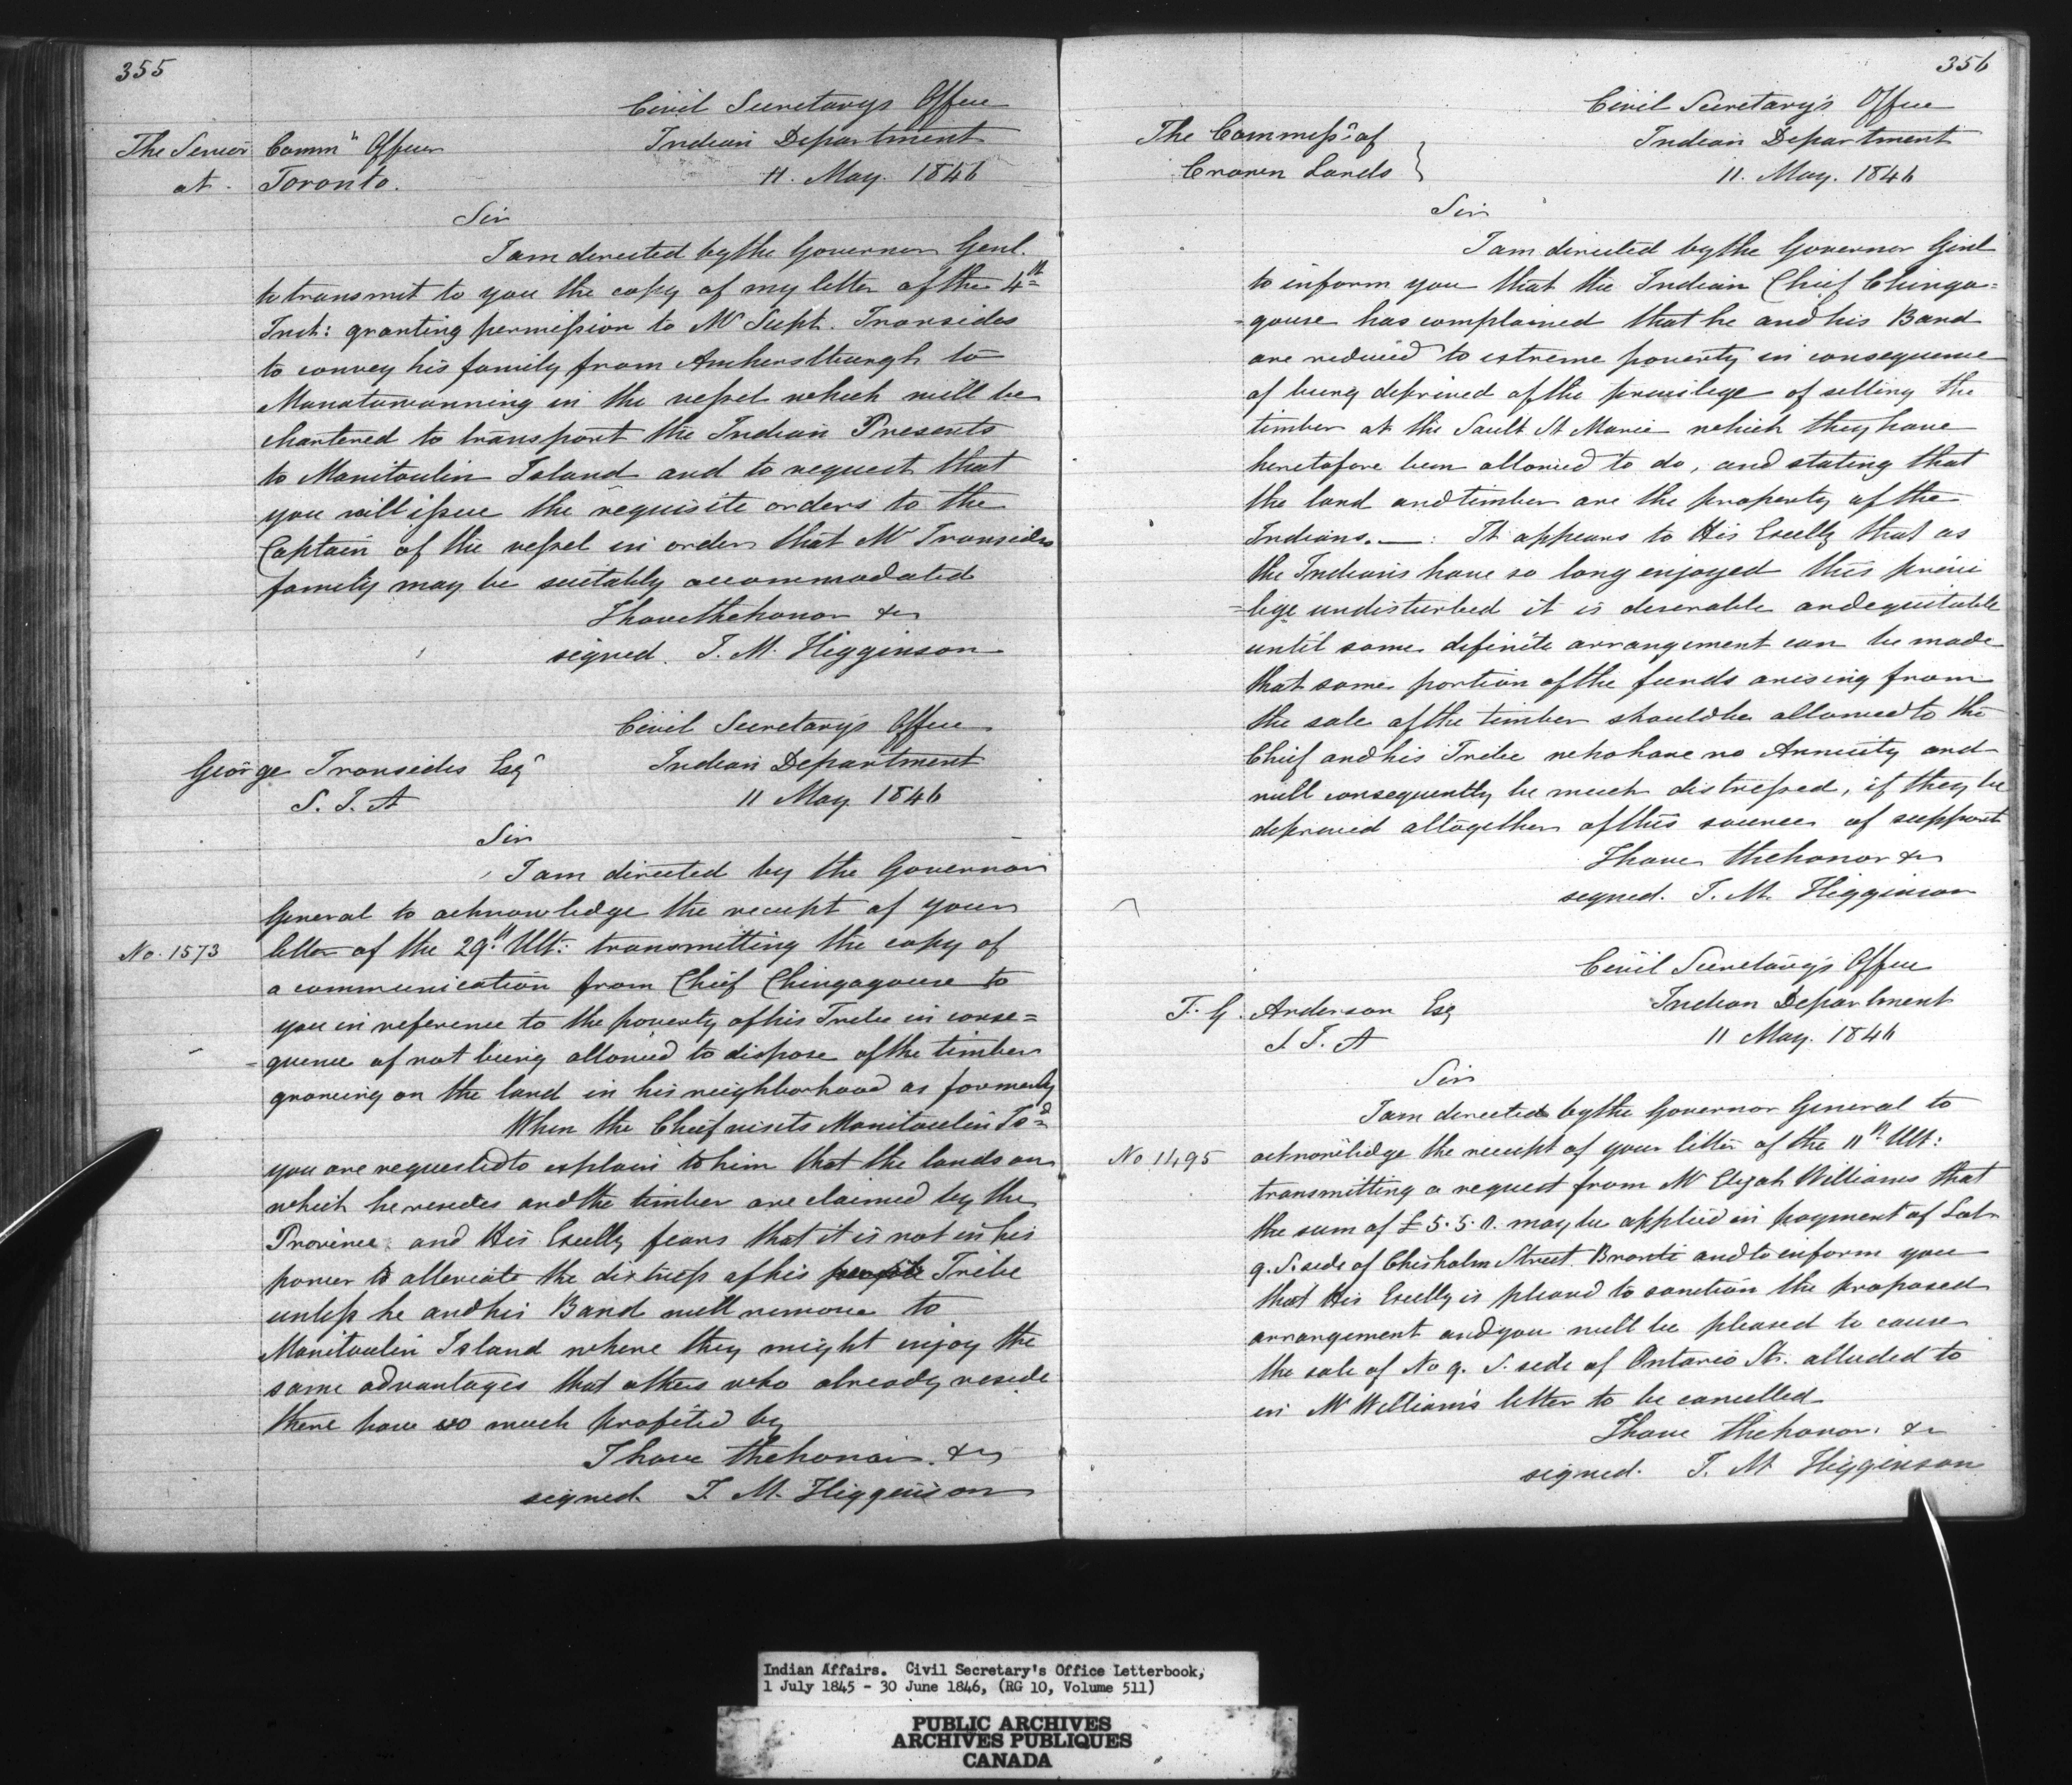 355
Civil Secretary's Office
The Senior Comm'g Officer Indian Department
at Toronto. 11. May. 1846
Sir
I am directed by the Governor Genl.
to transmit to you the copy of my letter of the 4th
Inst: granting permission to Mr Supt. Ironsides
to convey his family from Amherstburgh to
Manatowanning in the vessel which will be
chartered to transport the Indian Presents
to Manitoulin Island and to request that
you will issue the requisite orders to the
Captain of the vessel in order that Mr Ironsides
family may be suitably accommodated
I have the honor &c
signed. J. M. Higginson
Civil Secretary's Office
George Ironsides Esqr Indian Department
S. I. A 11 May 1846
Sir
I am directed by the Governor
General to acknowledge the receipt of your
No. 1573 letter of the 29th Ult: transmitting the copy of
a communication from Chief Chingagouse to
you in reference to the poverty of his Tribe in conse=
=quence of not being allowed to dispose of the timber
growing on the land in his neighborhood as formerly
When the Chief visits Manitoulin Isd
you are requested to explain to him that the lands on
which he resides and the timber are claimed by the
Province and His Excelly fears that it is not in his
power to alleviate the distress of his people Tribe
unless he and his Band will remove to
Manitoulin Island where they might enjoy the
same advantages that others who already reside
there have so much profited by
I have the honor. &c
signed. J. M. Higginson
356
Civil Secretary's Office
The Commissr of Indian Department
Crown Lands } 11. May. 1846
Sir
I am directed by the Governor Genl
to inform you that the Indian Chief Chinga=
=gouse has complained that he and his Band
are reduced to extreme poverty in consequence
of being deprived of the privilege of selling the
timber at the Sault St Marie which they have
heretofore been allowed to do, and stating that
the land and timber are the property of the
Indians. —: It appears to His Excelly that as
the Indians have so long enjoyed this privi
=lige undisturbed it is desirable and equitable
until some definite arrangement can be made
that some portion of the funds arising from
the sale of the timber should be allowed to the
Chief and his Tribe who have no Annuity and
will consequently be much distressed, if they be
deprived altogether of this source of support
I have the honor &c
signed. J. M. Higginson
Civil Secretary's Office
T. G. Anderson Esq Indian Department
S. I. A 11 May. 1846
Sir
I am directed by the Governor General to
No 1495 acknowledge the receipt of your letter of the 11th Ult:
transmitting a request from Mr Elijah Williams that
the sum of £5.5.0. may be applied in payment of Lot
9. S. side of Chisholm Street Bronti and to inform you
that His Excelly is pleased to sanction the proposed
arrangement and you will be pleased to cause
the sale of No 9. S. side of Ontario St. alluded to
in Mr William's letter to be cancelled
I have the honor. &c
signed. J. M Higginson
Indian Affairs. Civil Secretary's Office Letterbook,
1 July 1845 - 30 June 1846, (RG 10, Volume 511)
PUBLIC ARCHIVES
ARCHIVES PUBLIQUES
CANADA